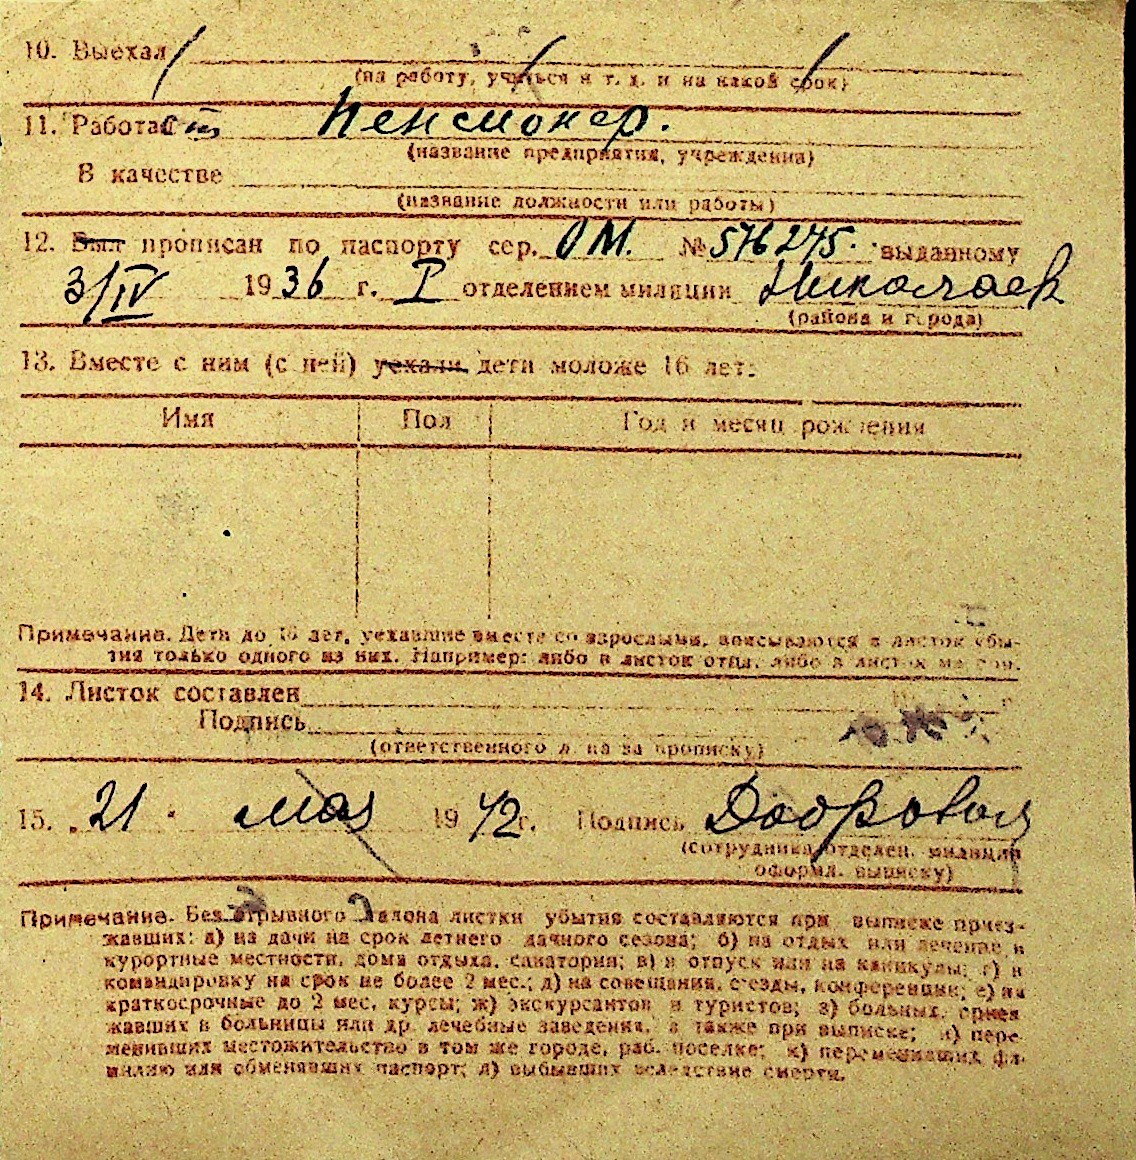 10. Выехал
(на работу, учиться и т. д. и на какой срок)
11. Работает Пенсионер.
(название предприятия, учреждения)
В качестве
(название должности или работы)
12. Был прописан по паспорту сер. ОМ. № 576275. выданному
3/IV 1936 г. I отделением милиции Николаев
(района и города)
13. Вместе с ним (с ней) уехали дети моложе 16 лет:
Имя Пол Год и месяц рождения
Примечание. Дети до 16 лет, уехавшие вместе со взрослыми, вписываются в листок убы-
тия только одного из них. Например: либо в листок отца, либо в листок матери.
14. Листок составлен
Подпись
(ответственного лица за прописку)
15. „21" мая 1942 г. Подпись
(сотрудника отделен. милиции
оформл. выписку)
Примечание. Без отрывного талона листки убытия составляются при выписке приез-
жавших: а) на дачи на срок летнего дачного сезона; б) на отдых или лечение в
курортные местности, дома отдыха, санатории; в) в отпуск или на каникулы; г) в
командировку на срок не более 2 мес.; д) на совещания, съезды, конференции; е) на
краткосрочные до 2 мес. курсы; ж) экскурсантов и туристов; з) больных, приез-
жавших в больницы или др. лечебные заведения, а также при выписке; и) пере-
менивших местожительство в том же городе, раб. поселке; к) переменивших фа-
милию или обменявших паспорт; л) выбывших вследствие смерти.